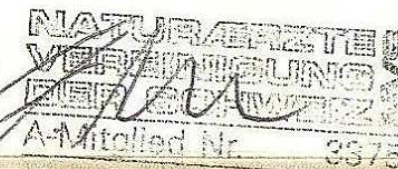 NATURÆRZTE
VEREINIGUNG
DER SCHWEIZ
A-Mitglied Nr. 3375